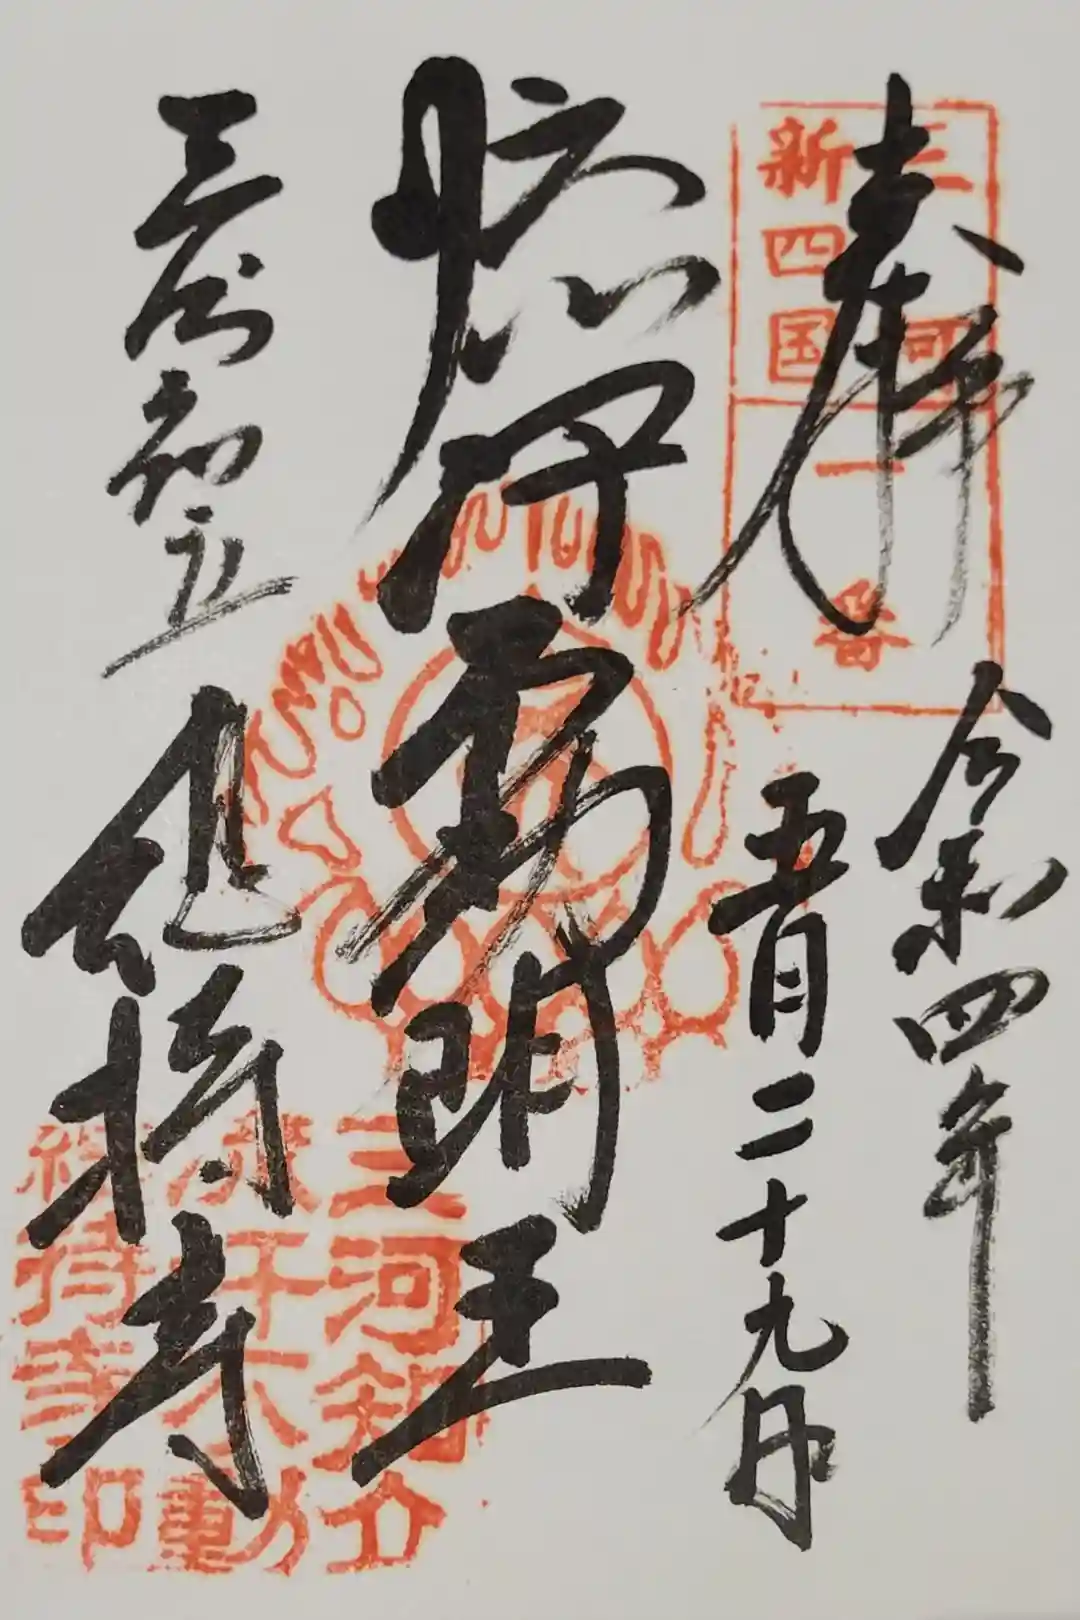 三河
新四国
一番
奉拝
令和四年
五月二十九日
流汗不動明王
三河知立
總持寺
三河知立
流汗不動
総持寺印